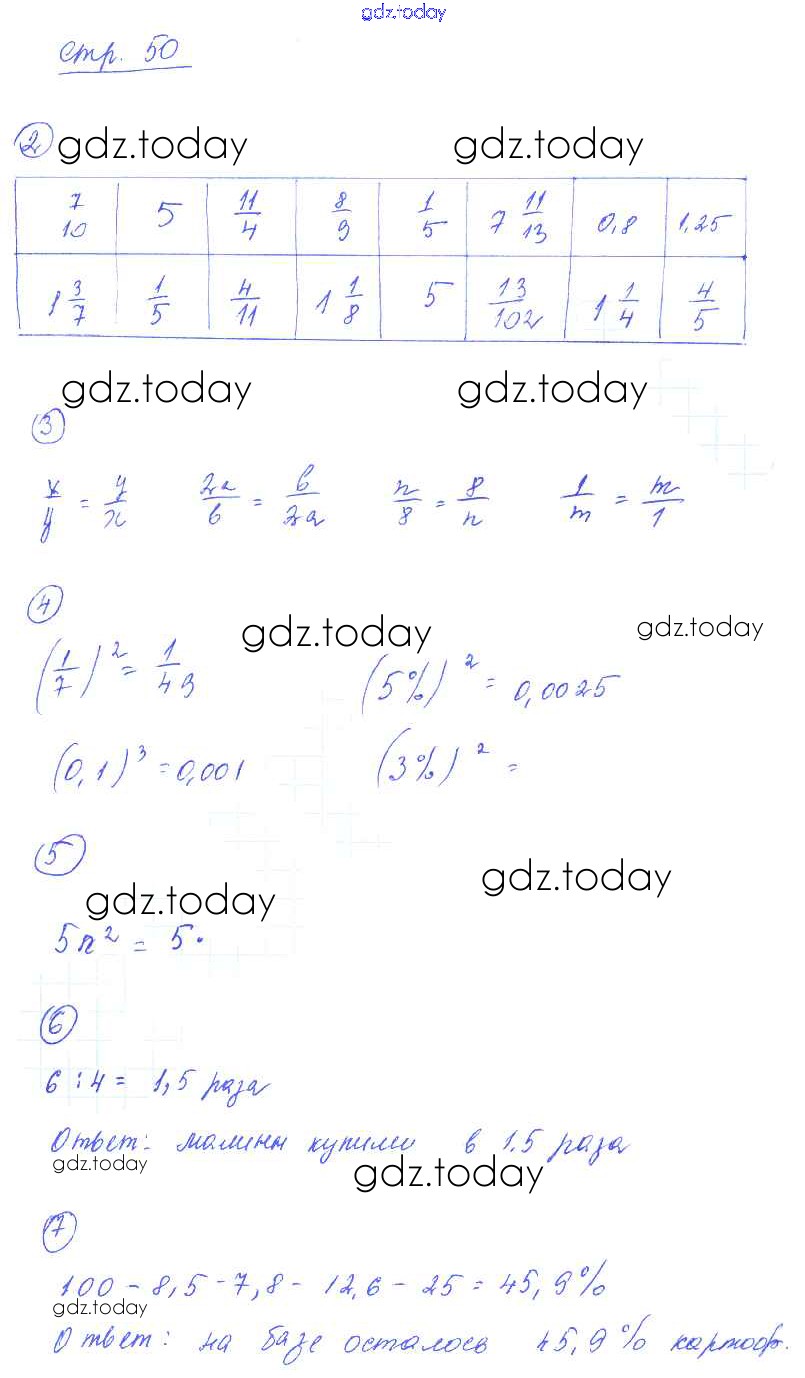 gdz.today
стр. 50
2 gdz.today gdz.today
7/10 5 11/4 8/9 1/5 7 11/13 0,8 1,25
1 3/7 1/5 4/11 1 1/8 5 13/102 1 1/4 4/5
gdz.today gdz.today
3
x/y = y/x 2a/b = b/2a n/8 = 8/n 1/m = m/1
4
gdz.today gdz.today
(1/7)² = 1/49 (5%)² = 0,0025
(0,1)³ = 0,001 (3%)² =
5
gdz.today gdz.today
5n² = 5·
6
6 : 4 = 1,5 раза
Ответ: малины купили в 1.5 раза
gdz.today gdz.today
7
100 - 8,5 - 7,8 - 12,6 - 25 = 45,9%
gdz.today gdz.today
Ответ: на базе осталось 45,9% картоф.